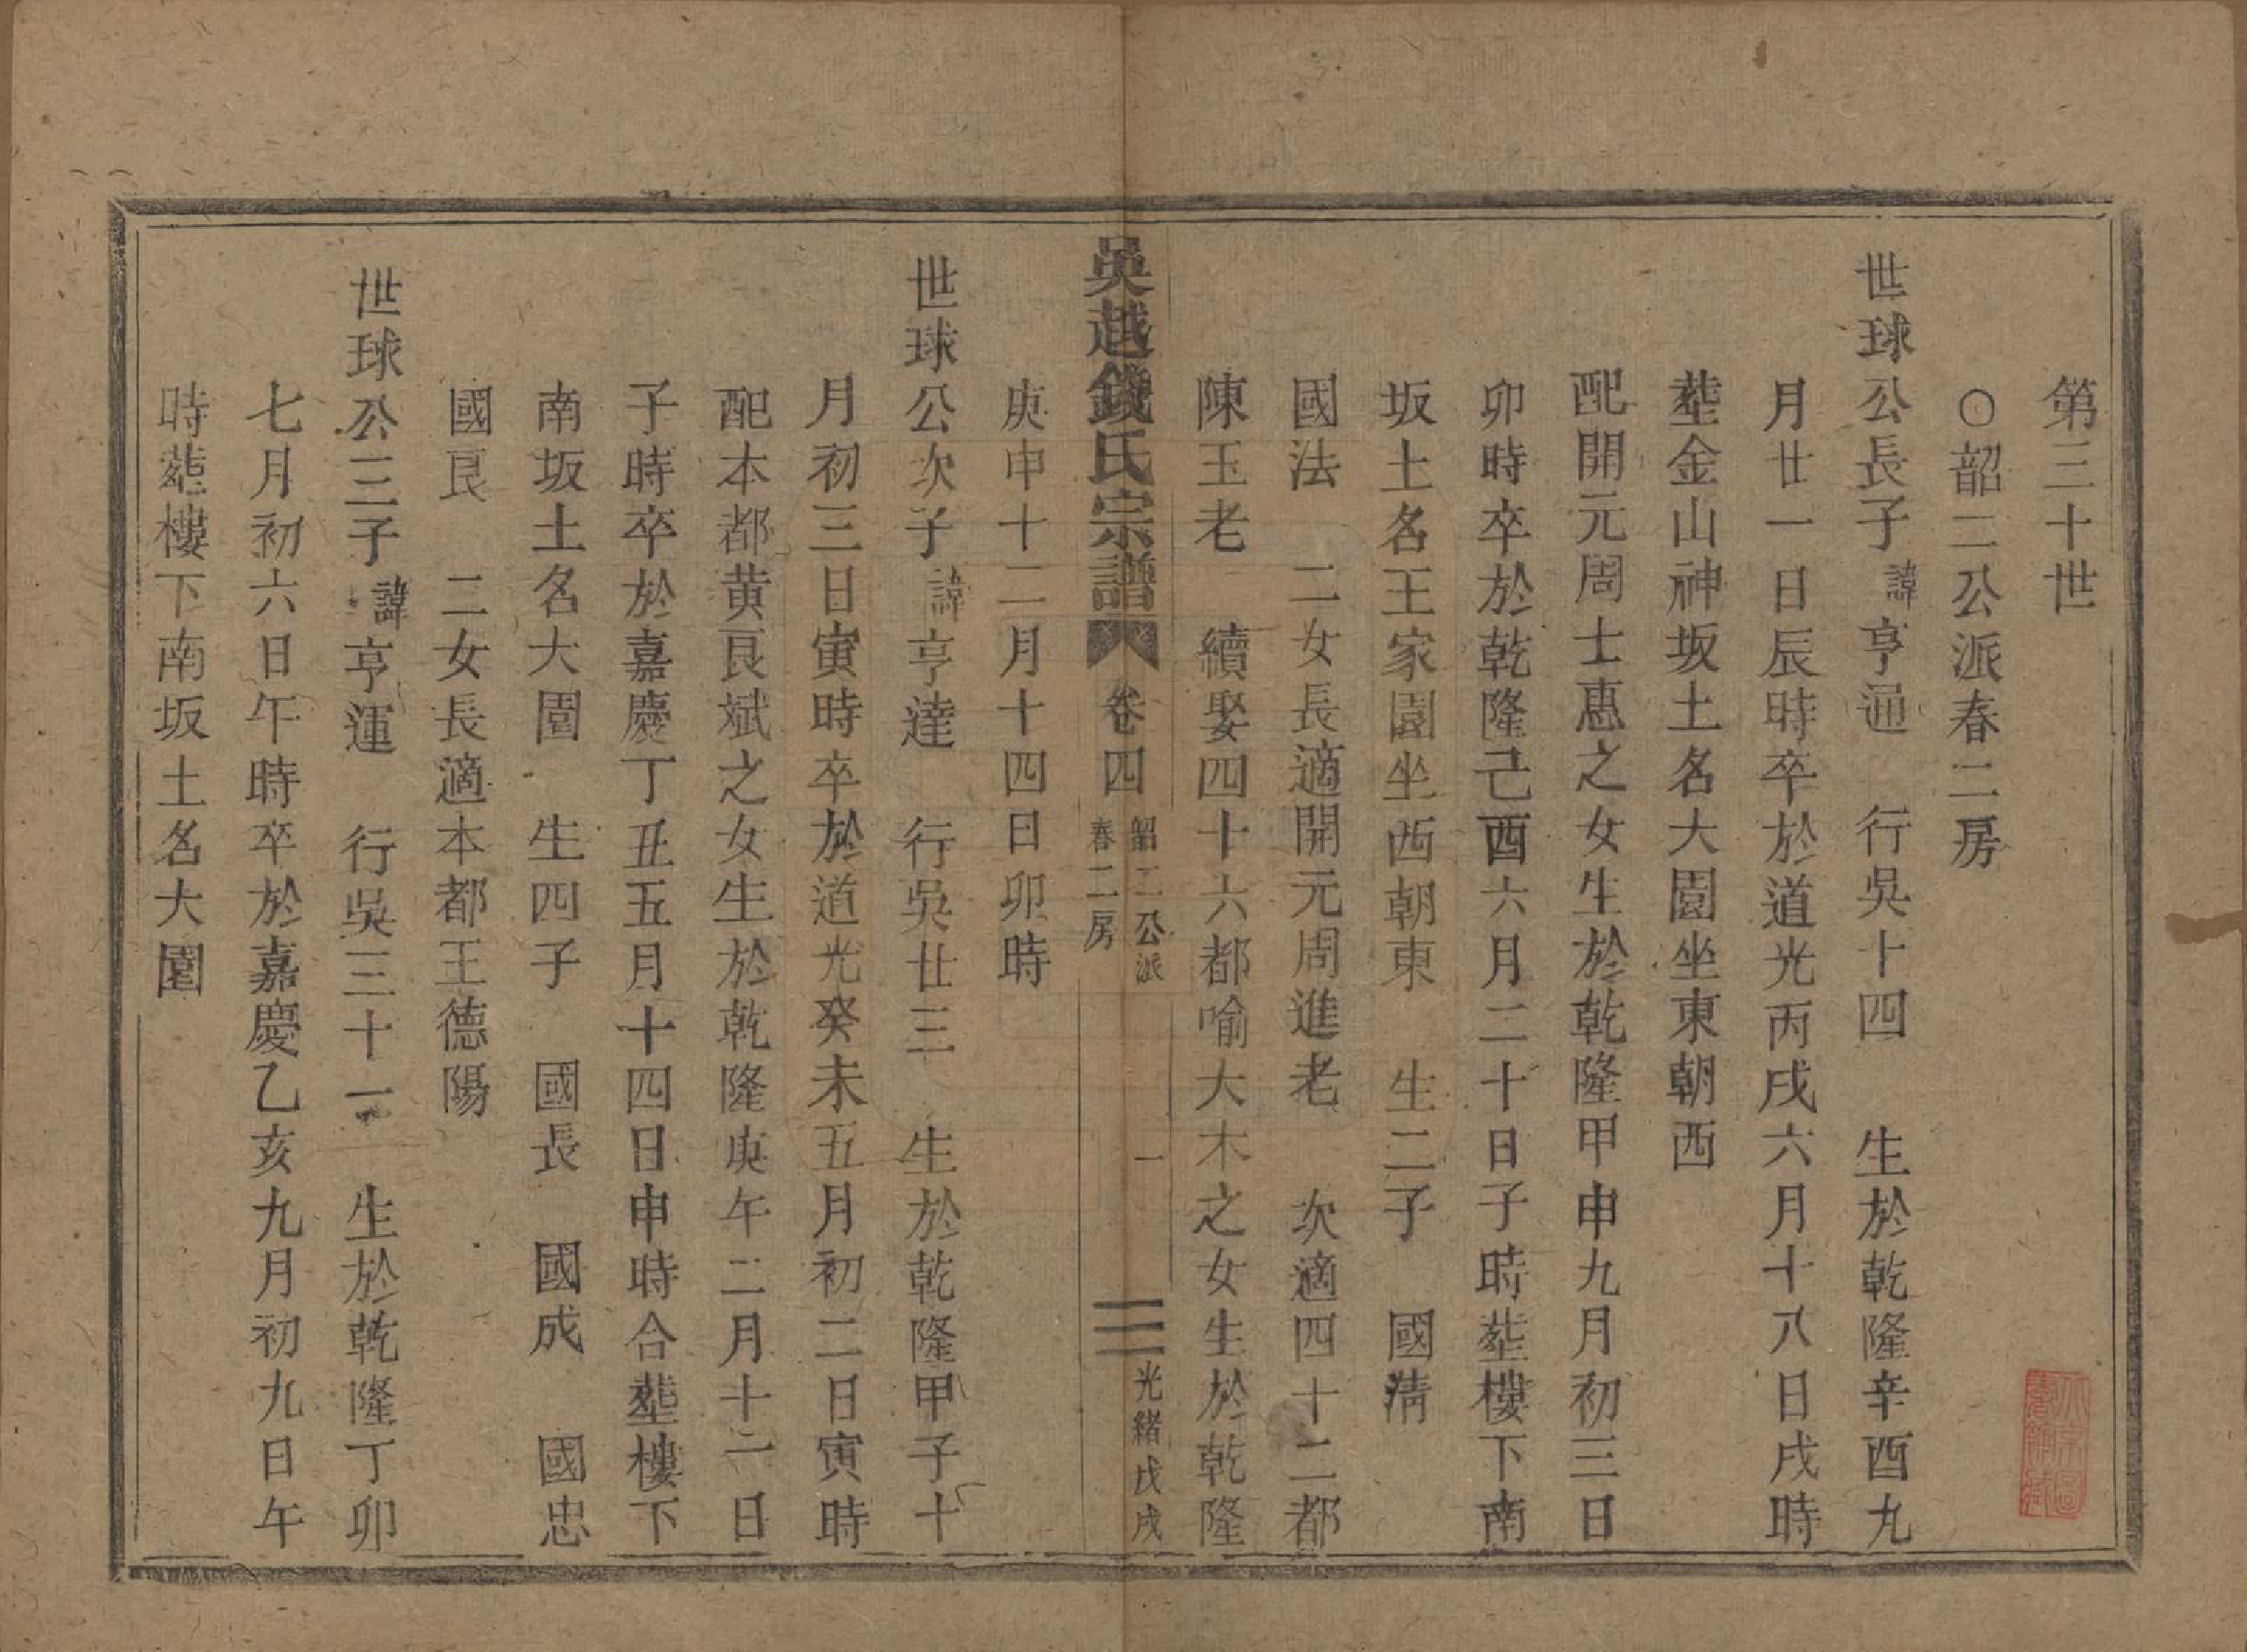 第三十世
○韶二公派春二房
世球公長子諱亨通　行吳十四　生於乾隆辛酉九
月廿一日辰時卒於道光丙戌六月十八日戌時
塟金山神坂土名大園坐東朝西
配開元周士惠之女生於乾隆甲申九月初三日
卯時卒於乾隆己酉六月二十日子時塟樓下南
坂土名王家園坐西朝東　生二子　國清
國法　二女長適開元周進老　次適四十二都
陳玉老　續娶四十六都喻大木之女生於乾隆
吳越錢氏宗譜　卷四　韶二公派　春二房　一　光緒戊戌
庚申十二月十四日卯時
世球公次子諱亨達　行吳廿三　生於乾隆甲子十
月初三日寅時卒於道光癸未五月初二日寅時
配本都黄良斌之女生於乾隆庚午二月十二日
子時卒於嘉慶丁丑五月十四日申時合塟樓下
南坂土名大園　生四子　國長　國成　國忠
國良　二女長適本都王德陽
世球公三子諱亨運　行吳三十一　生於乾隆丁卯
七月初六日午時卒於嘉慶乙亥九月初九日午
時塟樓下南坂土名大園